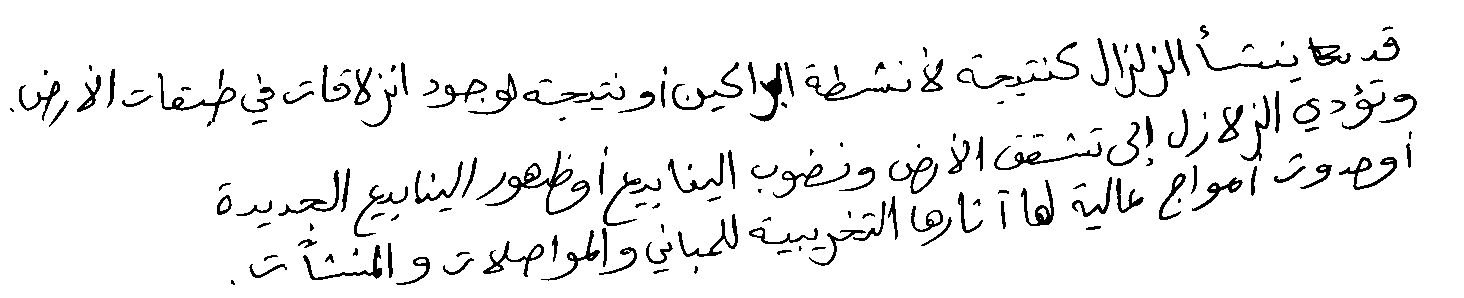 قد ينشأ الزلزال كنتيجة لأنشطة البراكين أو نتيجة لوجود انزلاقات في طبقات الأرض.
وتؤدي الزلازل إلى تشقق الأرض ونضوب الينابيع أو ظهور الينابيع الجديدة
أو حدوث أمواج عالية لها آثارها التخريبية للمباني والمواصلات والمنشآت.